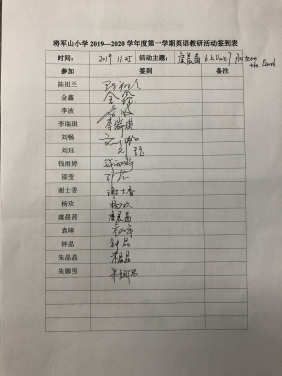 将军山小学 2019—2020 学年度第一学期英语教研活动签到表
时间: 2019. 11.25 活动主题: 虞晨茜 6上Unit7 Protect the Earth
参加 签到 备注
陈祖兰 陈祖兰
金鑫 金鑫
李波 李波
李瑞琪 李瑞琪
刘畅 刘畅
刘珏 刘珏
钱雨婷 钱雨婷
邵雯 邵雯
谢士香 谢士香
杨欢 杨欢
虞晨茜 虞晨茜
袁琳
钟晶 钟晶
朱晶晶 朱晶晶
朱娜男